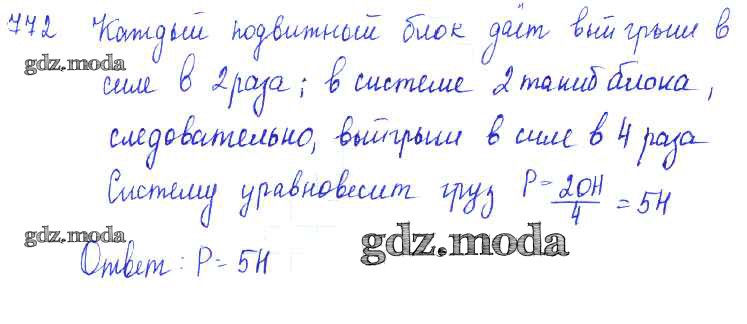 772 Каждый подвижный блок даёт выигрыш в
gdz.moda
силе в 2 раза; в системе 2 таких блока,
следовательно, выигрыш в силе в 4 раза
Систему уравновесит груз P = 20Н/4 = 5Н
gdz.moda
gdz.moda
Ответ: P = 5Н